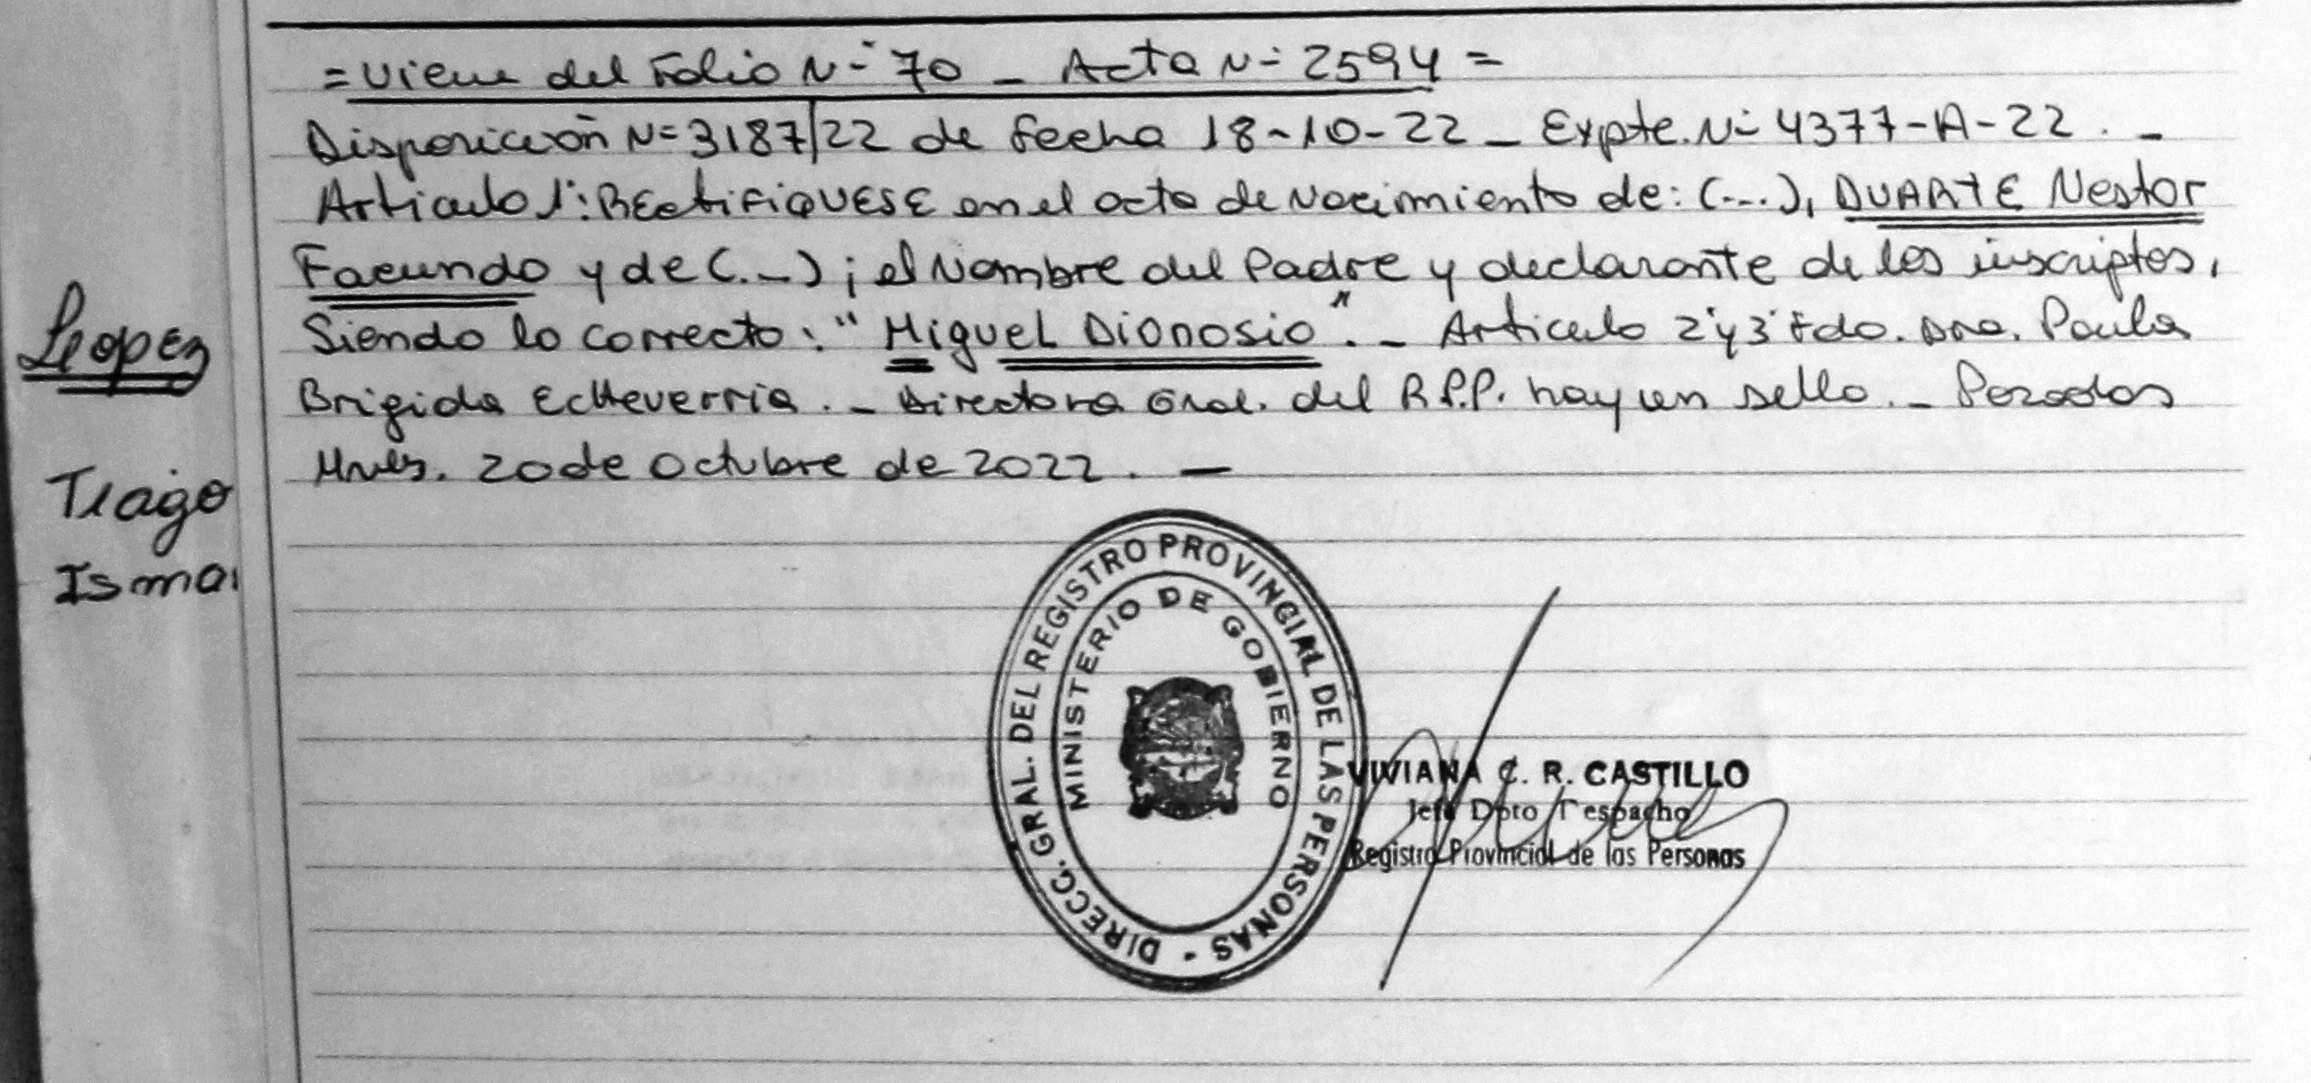 =Viene del Folio N- 70 _ Acta N- 2594=
Disposición N=3187/22 de fecha 18-10-22 _ Expte. N- 4377-A-22 . _
Articulo 1°: RECtiFiQUESE en el acta de Nacimiento de: (...), DUARTE Nestor
Facundo y de (...) ; el Nombre del Padre y declarante de los inscriptos,
Siendo lo correcto: "Miguel Dionosio". _ Articulo 2°y3° Fdo. Dra. Paula
Brigida Echeverria. _ Directora Gral. del R.P.P. hay un sello. _ Posadas
Mnes. 20 de Octubre de 2022. _
Lopez
Tiago
Isma
DIRECC. GRAL. DEL REGISTRO PROVINCIAL DE LAS PERSONAS -
MINISTERIO DE GOBIERNO
VIVIANA C. R. CASTILLO
Jefe Dpto Despacho
Registro Provincial de las Personas